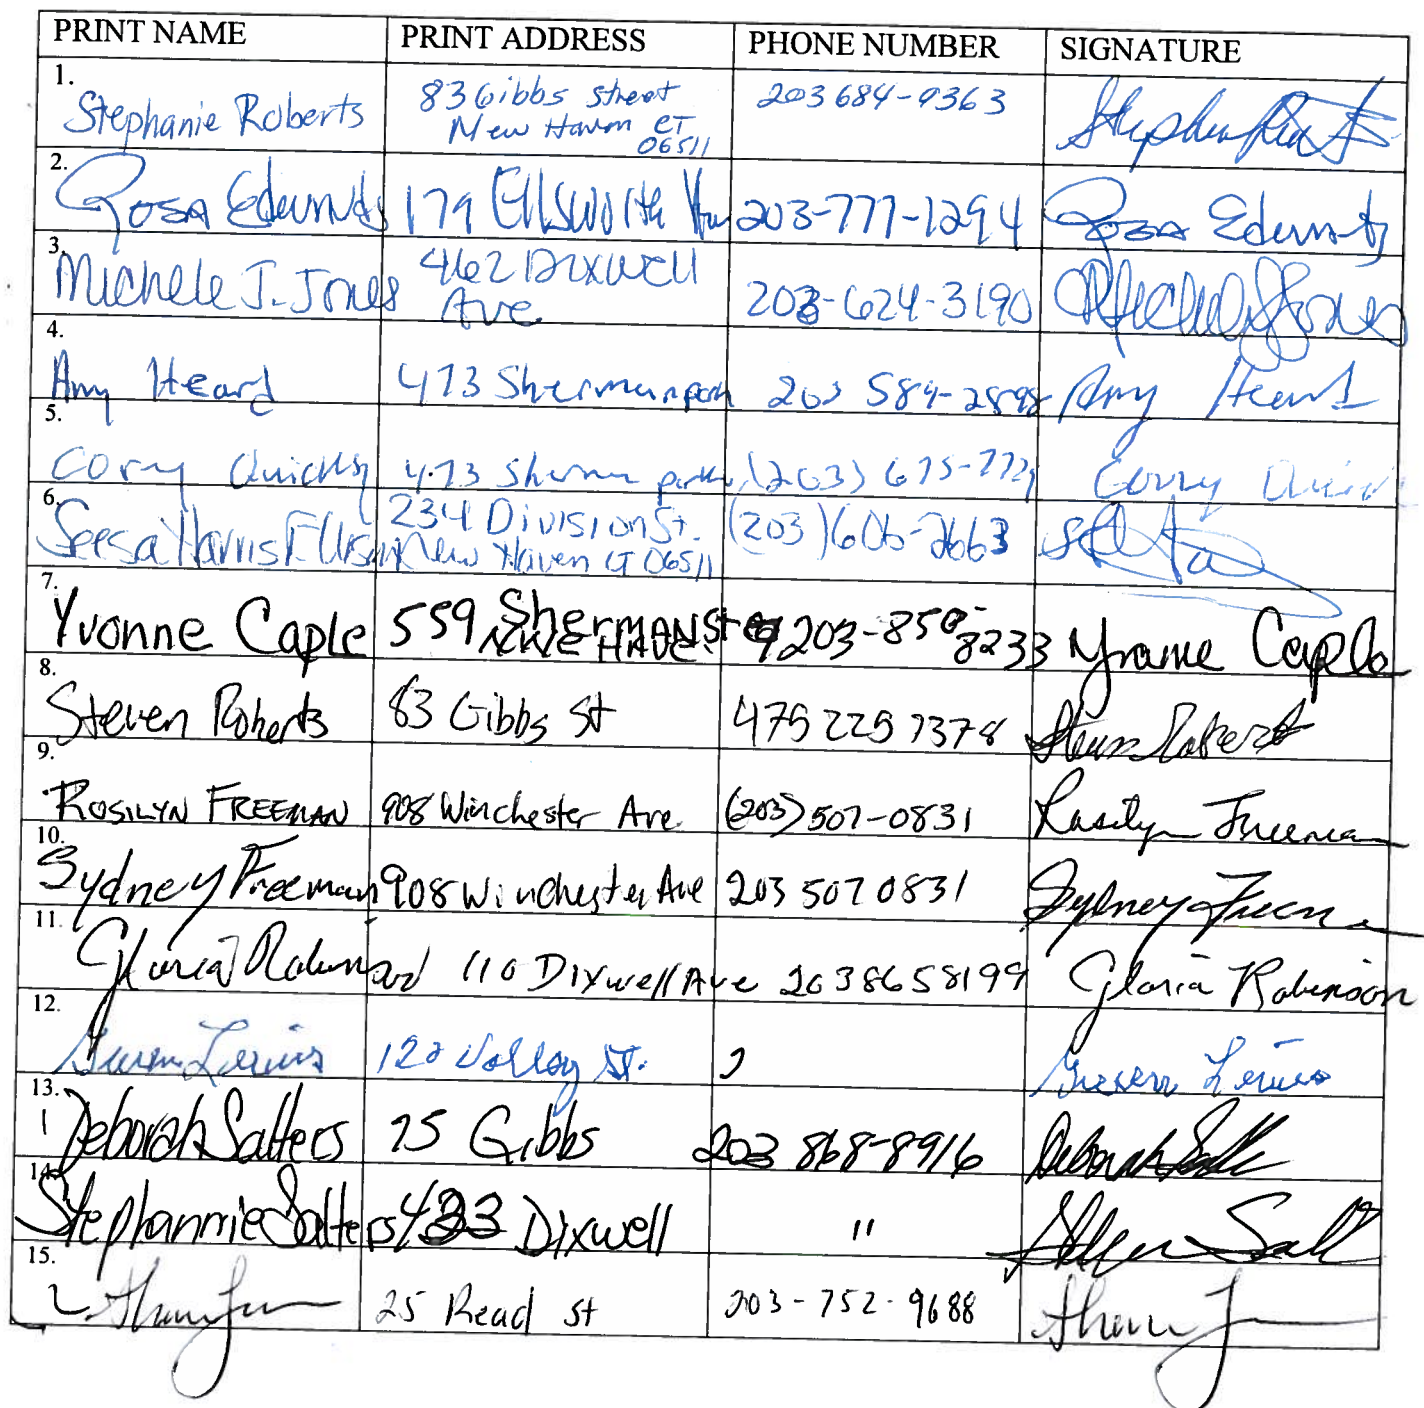 PRINT NAME PRINT ADDRESS PHONE NUMBER SIGNATURE
1. Stephanie Roberts 83 Gibbs Street 203 684-9363
New Haven CT
06511
2. Rosa Edmunds 179 Ellsworth 203-777-1294 Rosa Edmunds
3. Michele J. Jones 462 Dixwell 203-624-3190 Michele J Jones
Ave
4. Amy Heard 473 Sherman 203 584-2898 Amy Heard
5. Cory 473 (203) 675-772 Corry
6. Seesa Harris 234 Division St. (203) 606-2663
New Haven CT 06511
7. Yvonne Caple 559 Sherman 203-850- Yvonne Caple
8233
8. Steven Roberts 83 Gibbs St 475 225 7378 Steven Robert
9. ROSILYN FREEMAN 908 Winchester Ave (203) 507-0831 Rosilyn Freeman
10. Sydney Freeman 908 Winchester Ave 203 507 0831 Sydney Freeman
11. Gloria 110 Dixwell Ave 203 865 8199 Gloria Robinson
12. Lewis 122 Valley St. Lewis
13. Deborah Salters 75 Gibbs 203 868-8916 Deborah
14. Stephannie Salters 433 Dixwell "
15. 25 Read St 203-752-9688